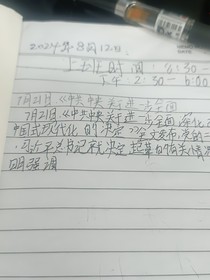 2024年8月12日
上班时间:6:30—
下午:2:30—6:00
7月21日《中共中央关于进一步全面
7月21日《中共中央关于进一步全面深化
中国式现代化的决定》全文发布,党的二
习近平总书记就决定起草的有关情况
明强调